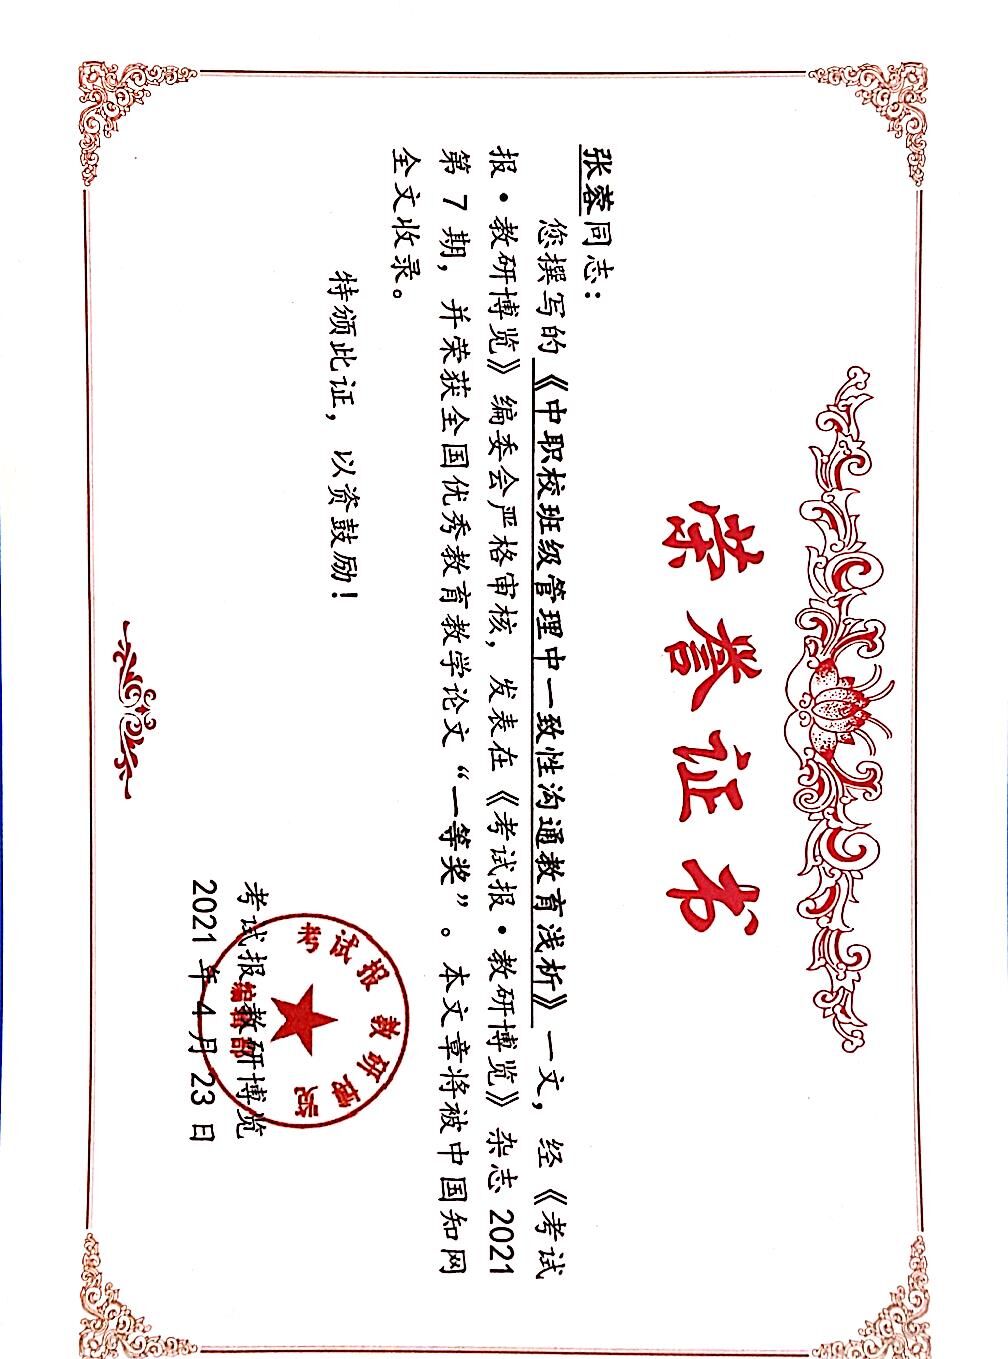 荣誉证书
张蓉同志：
您撰写的《中职校班级管理中一致性沟通教育浅析》一文，经《考试
报·教研博览》编委会严格审核，发表在《考试报·教研博览》杂志 2021
第 7 期，并荣获全国优秀教育教学论文“一等奖”。本文章将被中国知网
全文收录。
特颁此证，以资鼓励！
考试报教研博览
2021 年 4 月 23 日
考试报教研博览
编辑部